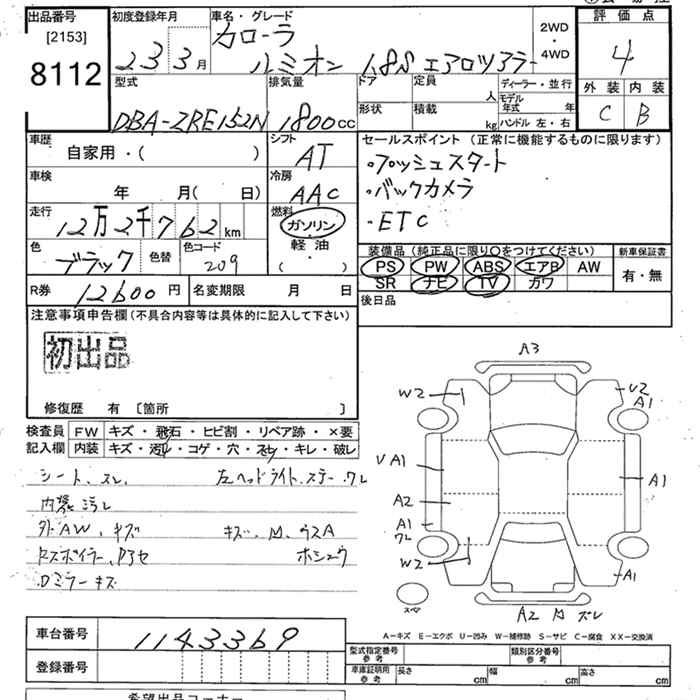 出品番号
[2153]
8112
初度登録年月
23 3月
車名・グレード
カローラ
ルミオン 1.8S エアロツアラー
2WD
・
4WD
評価点
4
外装 内装
C B
型式
DBA-ZRE152N
排気量
1800cc
ドア
定員
人
形状
積載
kg
ディーラー・並行
モデル年式
年
ハンドル 左・右
車歴
自家用・( )
シフト
AT
車検
年 月( 日)
冷房
AAC
走行
12万2千762km
燃料
ガソリン
軽油
( ・ )
色
ブラック
色替
色コード
209
セールスポイント(正常に機能するものに限ります)
・プッシュスタート
・バックカメラ
・ETC
装備品(純正品に限り○をつけてください)
PS PW ABS エアB AW
SR ナビ TV カワ
新車保証書
有・無
R券 12600 円
名変期限 月 日
後日品
注意事項申告欄(不具合内容等は具体的に記入して下さい)
初出品
修復歴 有 〔箇所 〕
検査員
記入欄
FW キズ・飛石・ヒビ割・リペア跡・×要
内装 キズ・汚レ・コゲ・穴・スレ・キレ・破レ
シート、スレ、 左ヘッドライト、ステー、ワレ
内装汚レ
外AW、キズ キズ、凹、ウスA
Rスポイラー、P3セ ホシュウ
Dミラーキズ
A3
W2
U2
A1
V A1
A1
A2
A1
ワレ
W2
A1
スペア
A2 凹 ズレ
A-キズ E-エクボ U-凹み W-補修跡 S-サビ C-腐食 XX-交換済
車台番号 1143369
登録番号
型式指定番号
参考
類別区分番号
参考
車庫証明用
参考
長さ cm
幅 cm
高さ cm
希望出品コーナー